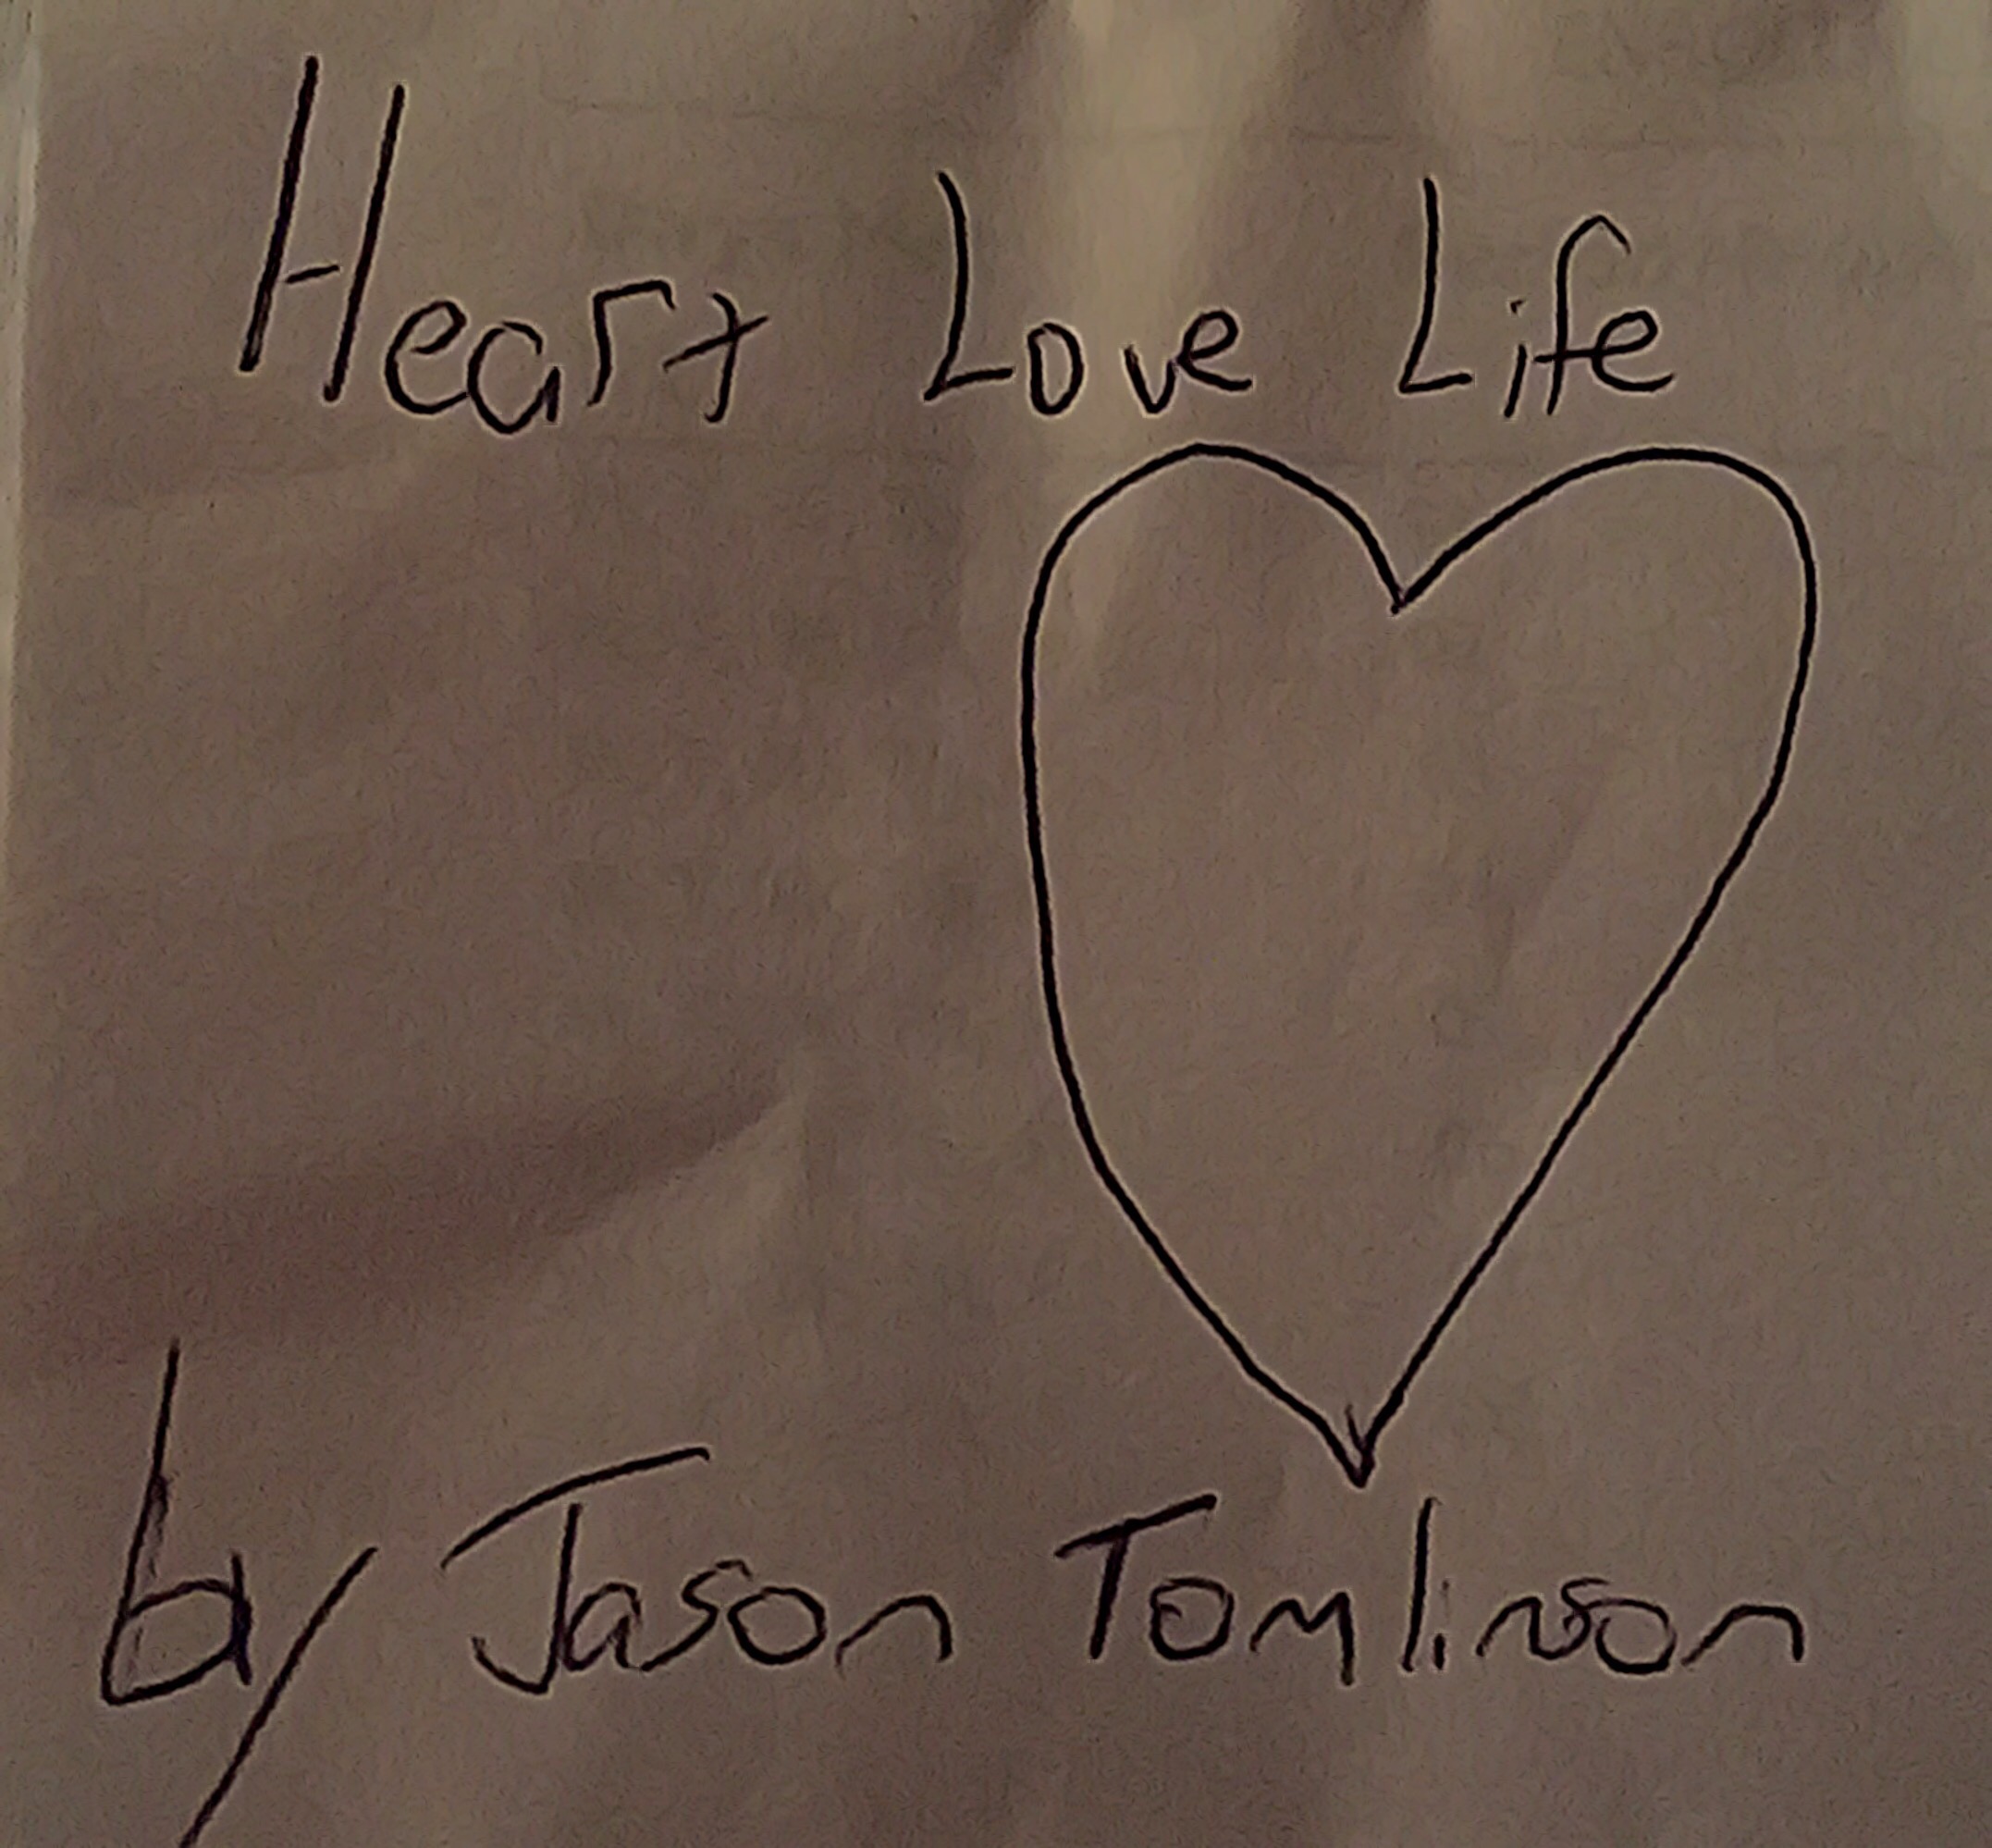 Heart Love Life
by Jason Tomlinson